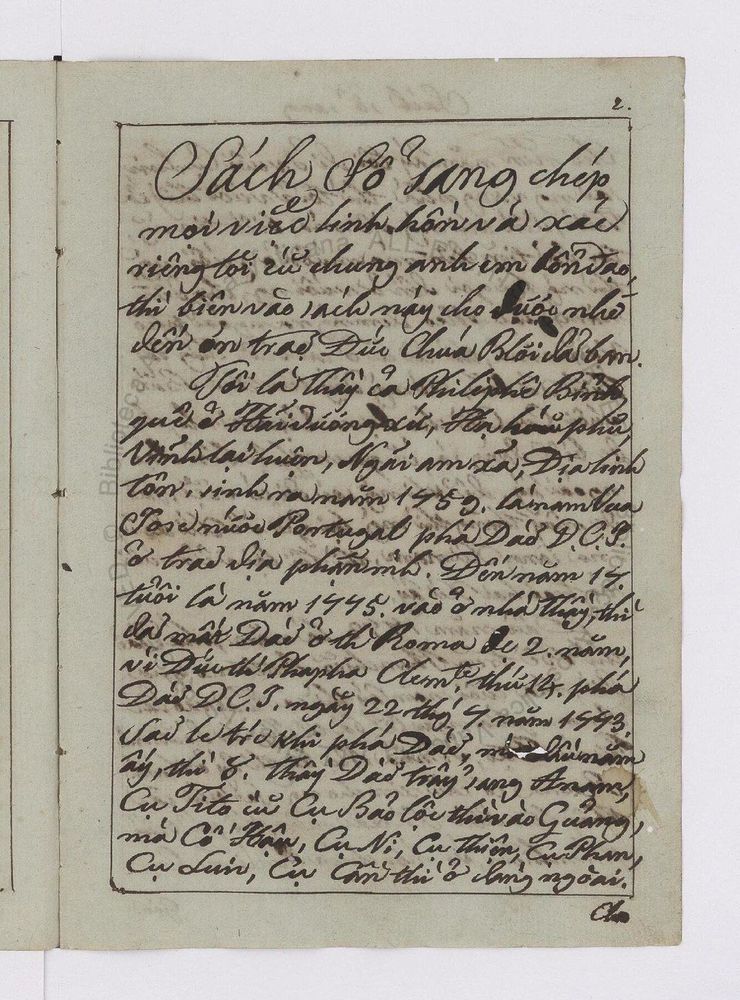 2.
Sách Sổ sang chép
mọi viẹc linh hồn và xác
riêng tôi, cũ chung anh em bổn đạo,
thì biên vào sách này cho được nhớ
đến ơn traọ Đức Chúa Blời đã ban.
Tôi là Thầy cả Philiphê Bỉnh,
quê ở Hải dương xứ, Hạ hồũ phủ,
Vĩnh lại huiện, Ngải am xã, Địa linh
tôn. sinh ra năm 1759. là nam Vua
Jose nước Portugal phá Dàọ D.C.J.
ở traọ địa phận mình. Đến năm 17.
tuổi là năm 1775. vào ở nhà thầy, thì
đã mất Dàọ ở th̀ Roma 2. năm,
vì Đức th́ Phapha Clemte. thứ 14. phá
Dàọ D.C.J. ngày 22 thg 7. năm 1773.
Saọ le trc khi phá Dàọ, đầu năm
ấy, thì 8. thầy Dàọ trẩy sang Anam,
Cụ Tito cũ Cụ Bảo lôc thì vào Quảng,
mà Cố Hậu, Cụ Ni, Cụ Thiện, Cụ Phan,
Cụ Luis, Cụ Cần thì ở đàng ngoài.